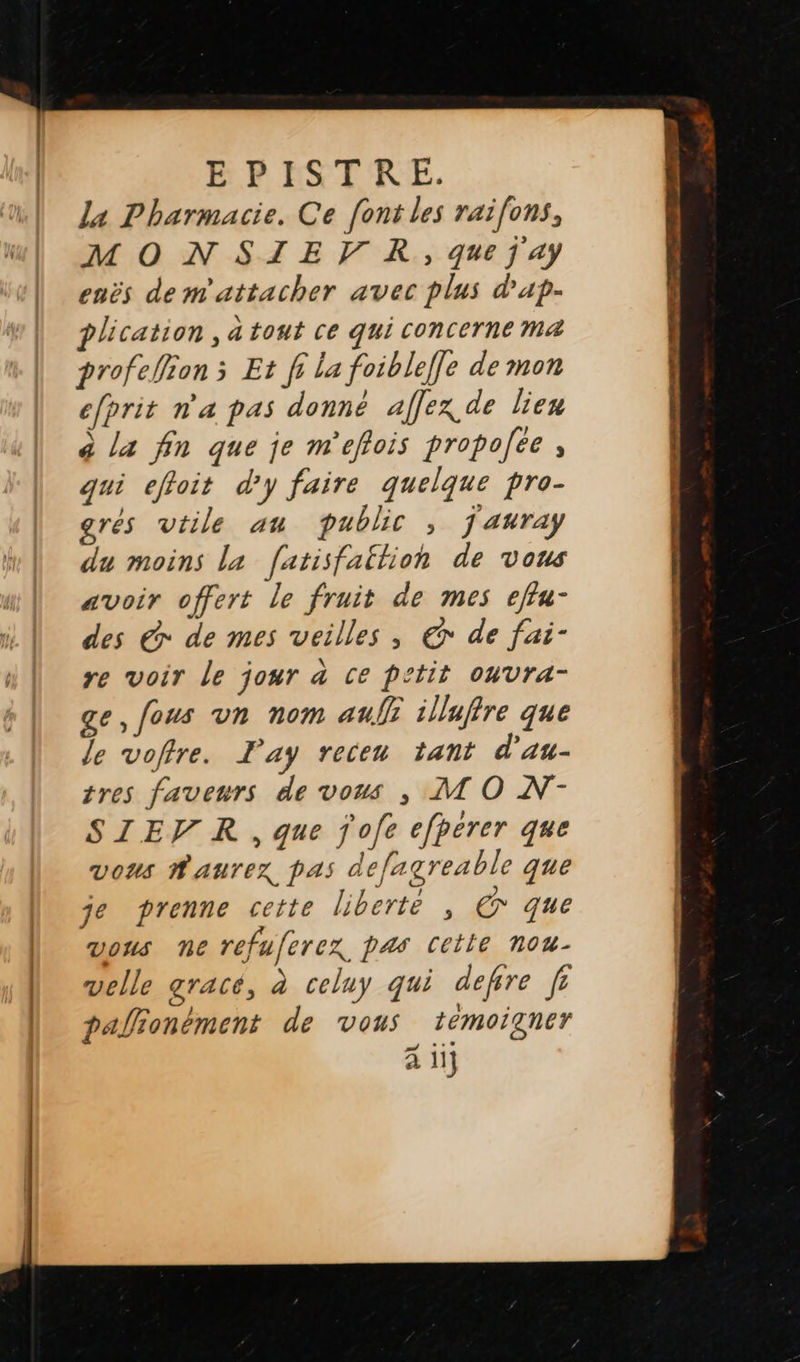 EPISTRE.
la Pharmacie. Ce ſont les raiſons,
MONSIEVR, que j'ay
enës de m'attacher avec plus d'ap-
plication, à tout ce qui concerne ma
profeſſion; Et ſi la foibleſſe de mon
eſprit n'a pas donné aſſez de lieu
à la fin que je m'eſtois propoſée,
qui eſtoit d'y faire quelque pro-
grés vtile au public, j'auray
du moins la ſatisfaction de vous
avoir offert le fruit de mes eſtu-
des & de mes veilles, & de fai-
re voir le jour à ce petit ouvra-
ge, ſous vn nom auſſi illuſtre que
le voſtre. I'ay receu tant d'au-
tres faveurs de vous, MON-
SIEVR, que j'oſe eſpérer que
vous n'aurez pas deſagreable que
je prenne cette liberté, & que
vous ne refuſerez pas cette nou-
velle gracé, à celuy qui deſire ſi
paſſionément de vous témoigner
ã iij